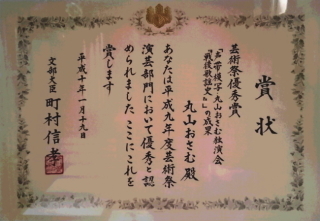 賞状
芸術祭優秀賞
丸山おさむ独演会
「戦後歌謡史」の成果
丸山おさむ殿
あなたは平成九年度芸術祭
演芸部門において優秀と認
められましたここにこれを
賞します
平成十年一月十九日
文部大臣 町村信孝